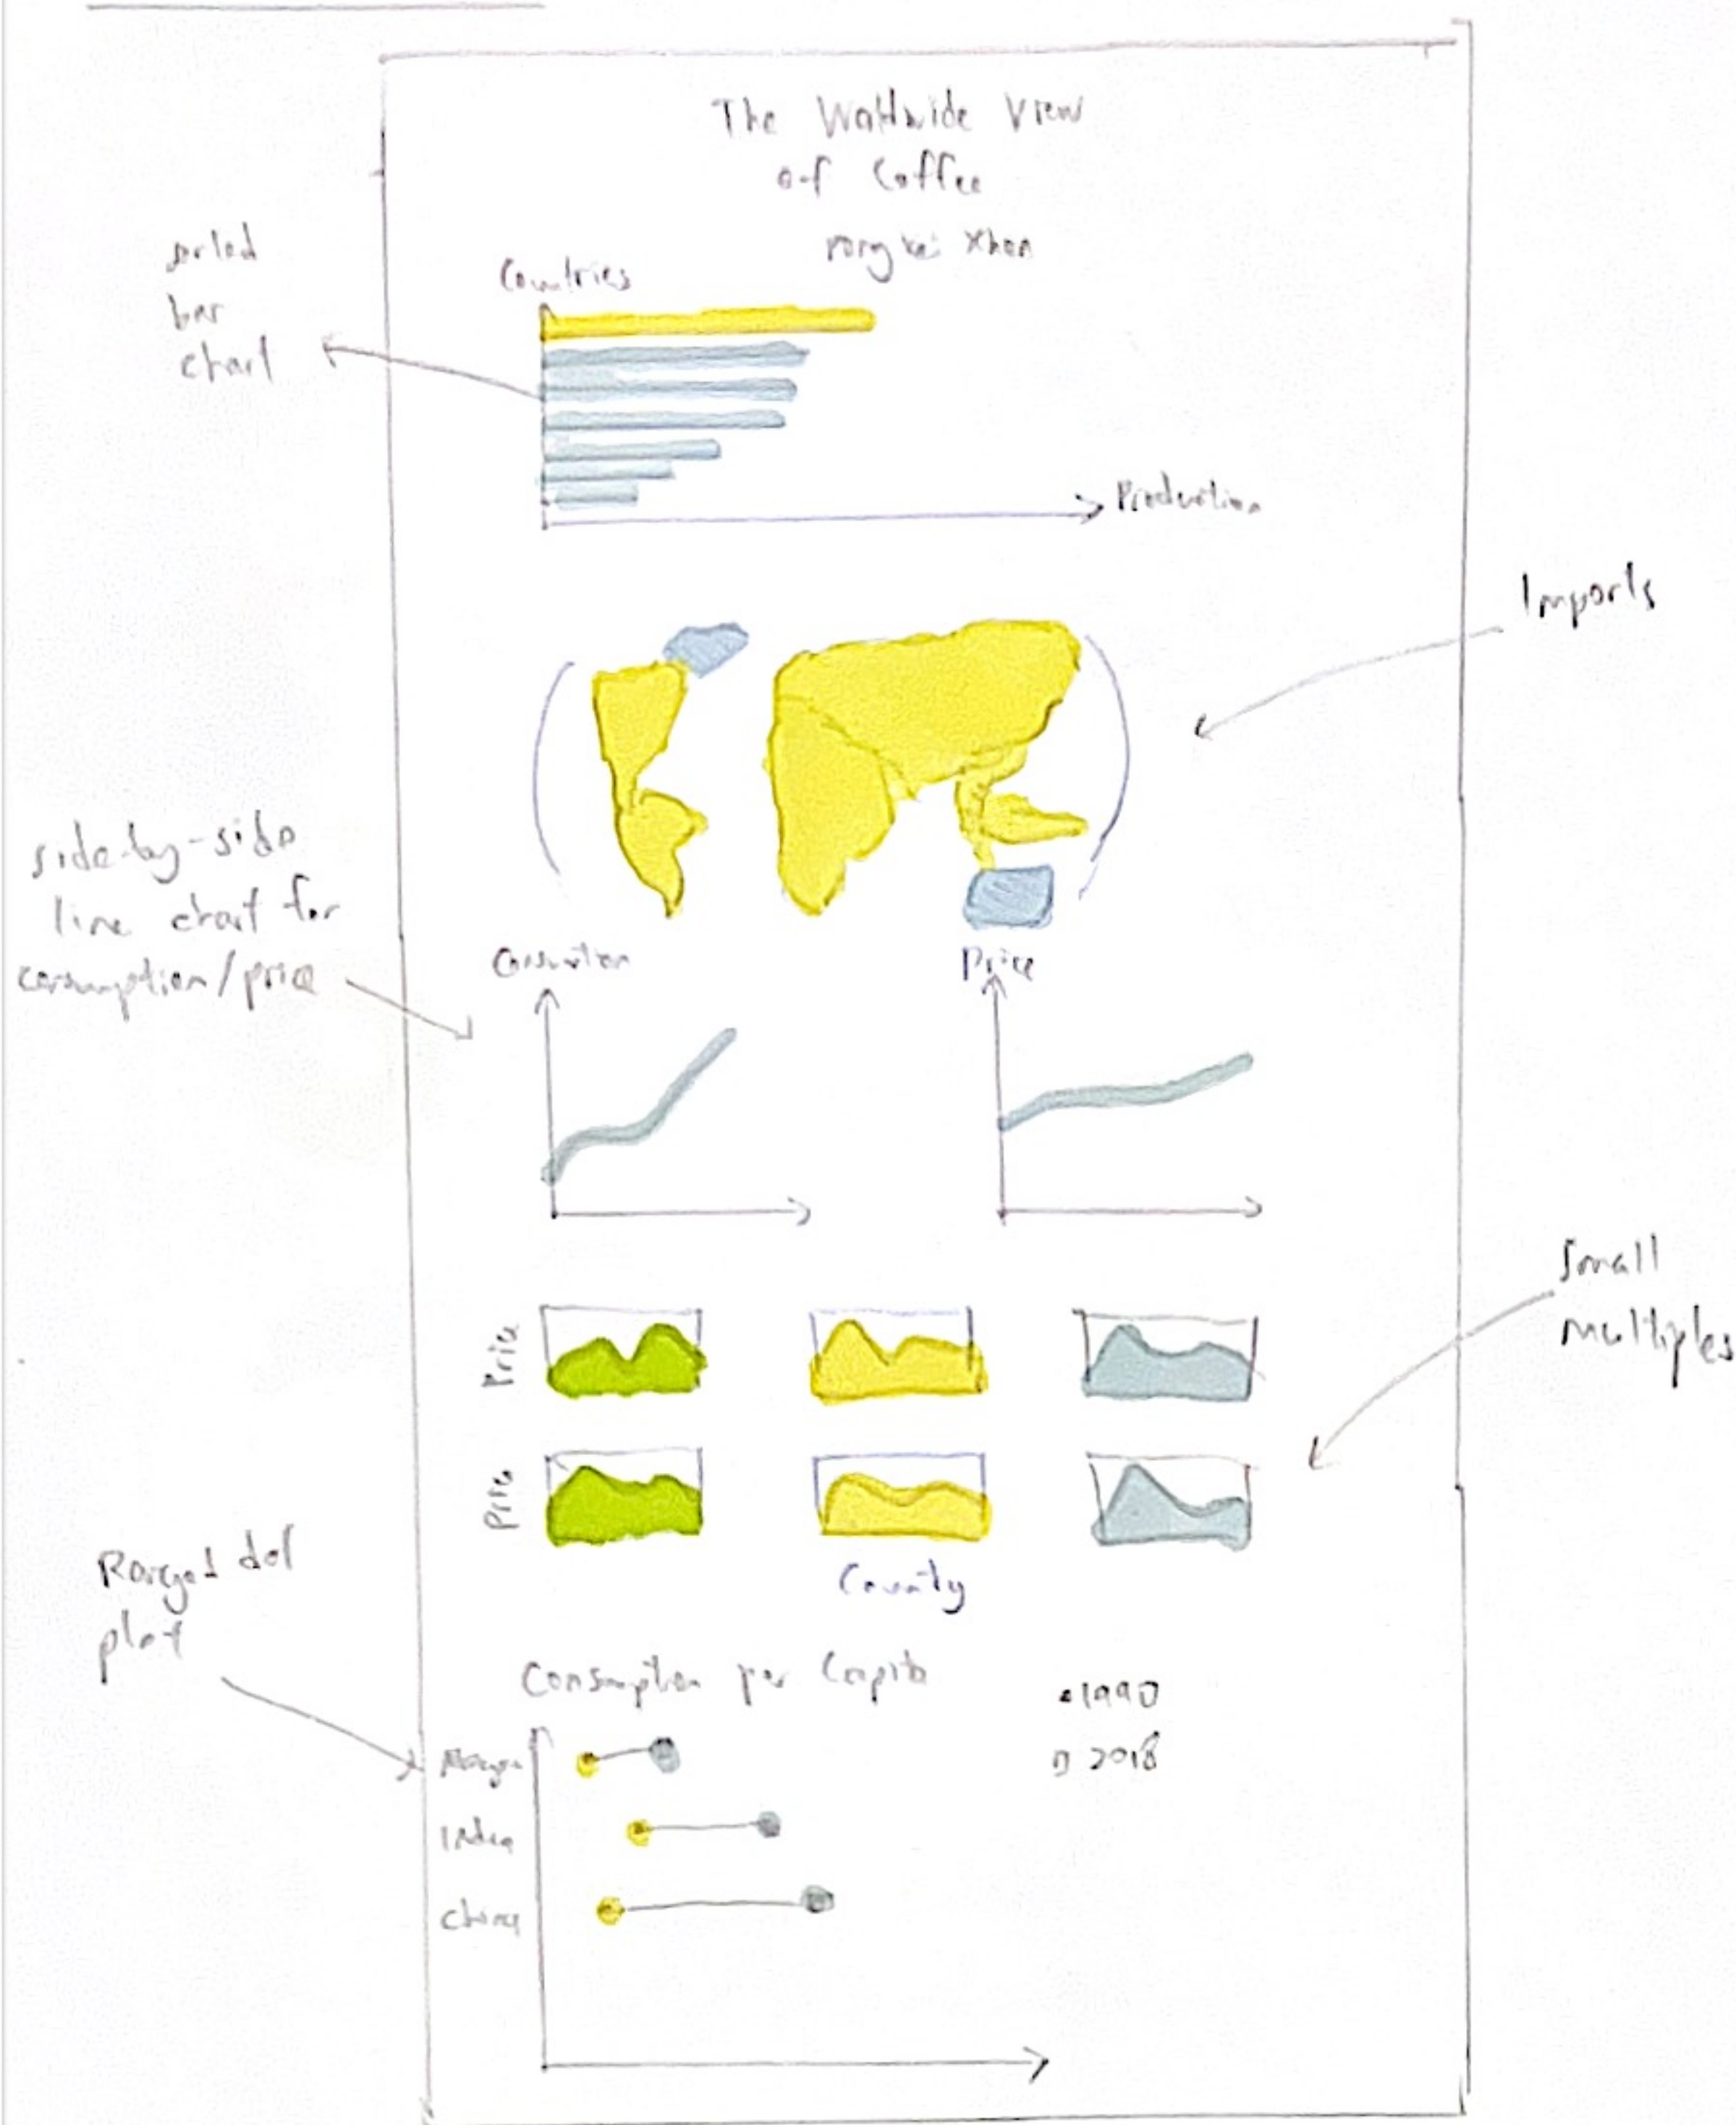 The Worldwide View
of Coffee
Countries
bar
chart
Production
Imports
side-by-side
line chart for
consumption/price
Price
Small
multiples
Price
Price
County
Ranged dot
plot
Consumption per Capita
1990
2018
India
China